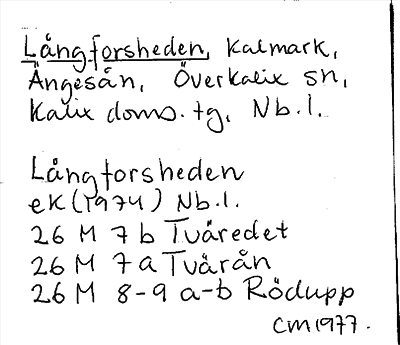 Långforsheden, Kalmark,
Ängesån, Överkalix sn,
Kalix doms.tg, Nb.l.
Långforsheden
eK (1974) Nb.l.
26 M 7 b Tväredet
26 M 7 a Tvärån
26 M 8-9 a-b Rödupp
CM 1977.